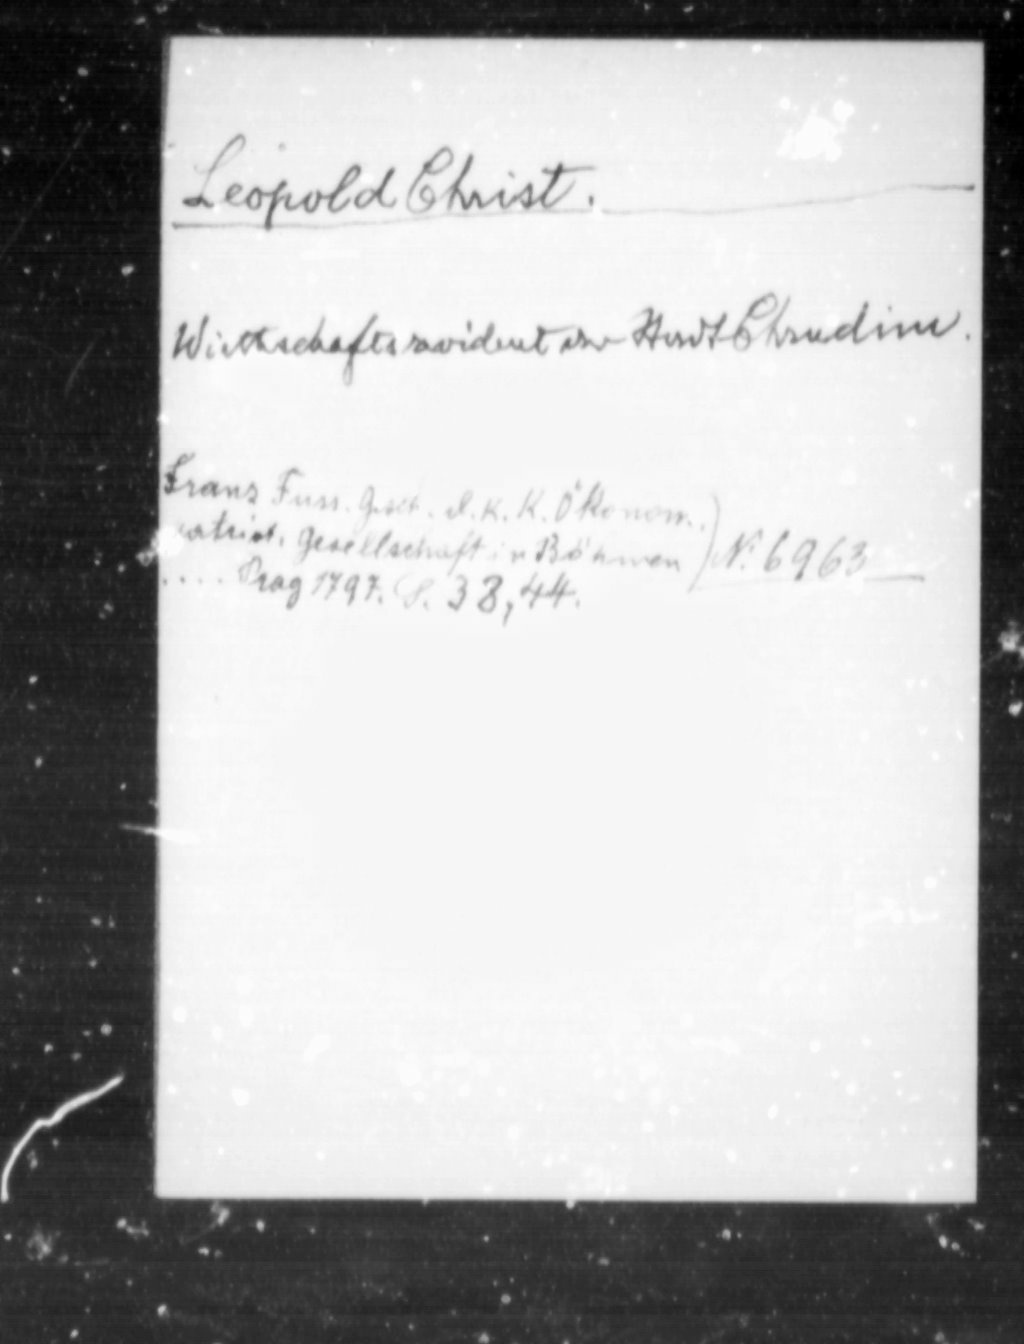 Leopold Christ.
Wirthschaftsrevident der Stadt Chrudim.
Franz Fuss. Gesch. d. K. K. Ökonom.
patriot. Gesellschaft in Böhmen
.... Prag 1797. S. 38, 44.
) N. 6963